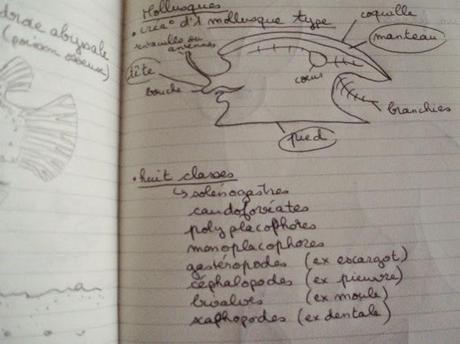 drae abyssale
(poisson osseux)
Mollusques
• créa° d'1 mollusque type
tentacules ou
antennes
coquille
manteau
tête
bouche
coeur
branchies
pied
• huit classes
↳ solénogastres
caudofovéates
polyplacophores
monoplacophores
gastéropodes (ex escargot)
céphalopodes (ex pieuvre)
bivalves (ex moule)
scaphopodes (ex dentale)